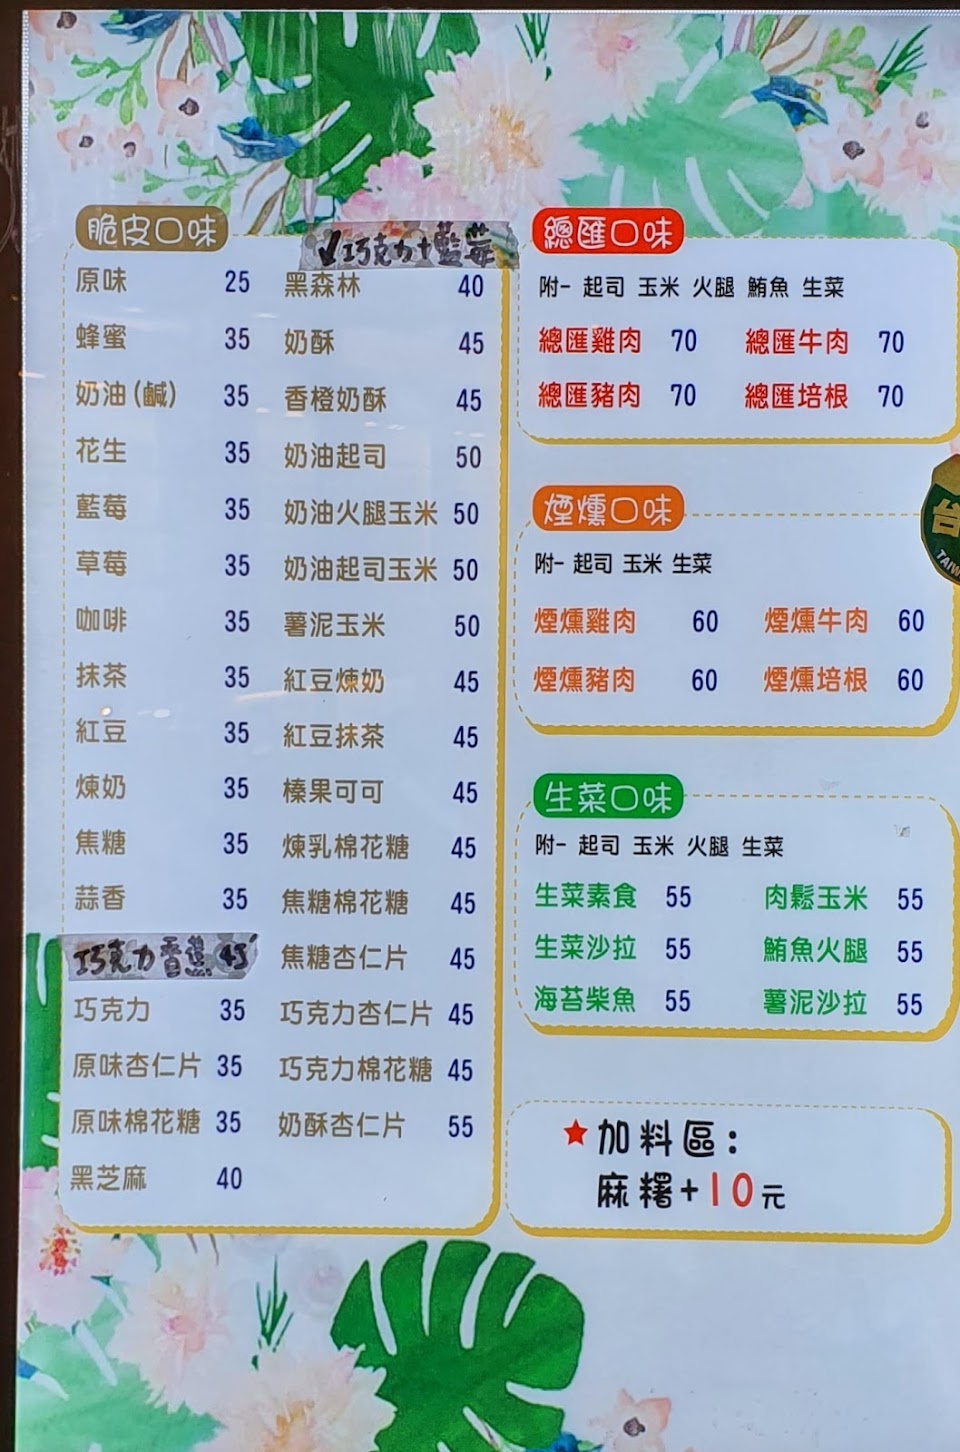 脆皮口味
原味 25
蜂蜜 35
奶油(鹹) 35
花生 35
藍莓 35
草莓 35
咖啡 35
抹茶 35
紅豆 35
煉奶 35
焦糖 35
蒜香 35
巧克力香蕉 45
巧克力 35
原味杏仁片 35
原味棉花糖 35
黑芝麻 40
✓巧克力+藍莓
黑森林 40
奶酥 45
香橙奶酥 45
奶油起司 50
奶油火腿玉米 50
奶油起司玉米 50
薯泥玉米 50
紅豆煉奶 45
紅豆抹茶 45
榛果可可 45
煉乳棉花糖 45
焦糖棉花糖 45
焦糖杏仁片 45
巧克力杏仁片 45
巧克力棉花糖 45
奶酥杏仁片 55
總匯口味
附- 起司 玉米 火腿 鮪魚 生菜
總匯雞肉 70 總匯牛肉 70
總匯豬肉 70 總匯培根 70
煙燻口味
附- 起司 玉米 生菜
煙燻雞肉 60 煙燻牛肉 60
煙燻豬肉 60 煙燻培根 60
台
TAIW
生菜口味
附- 起司 玉米 火腿 生菜
生菜素食 55 肉鬆玉米 55
生菜沙拉 55 鮪魚火腿 55
海苔柴魚 55 薯泥沙拉 55
★加料區:
麻糬+10元